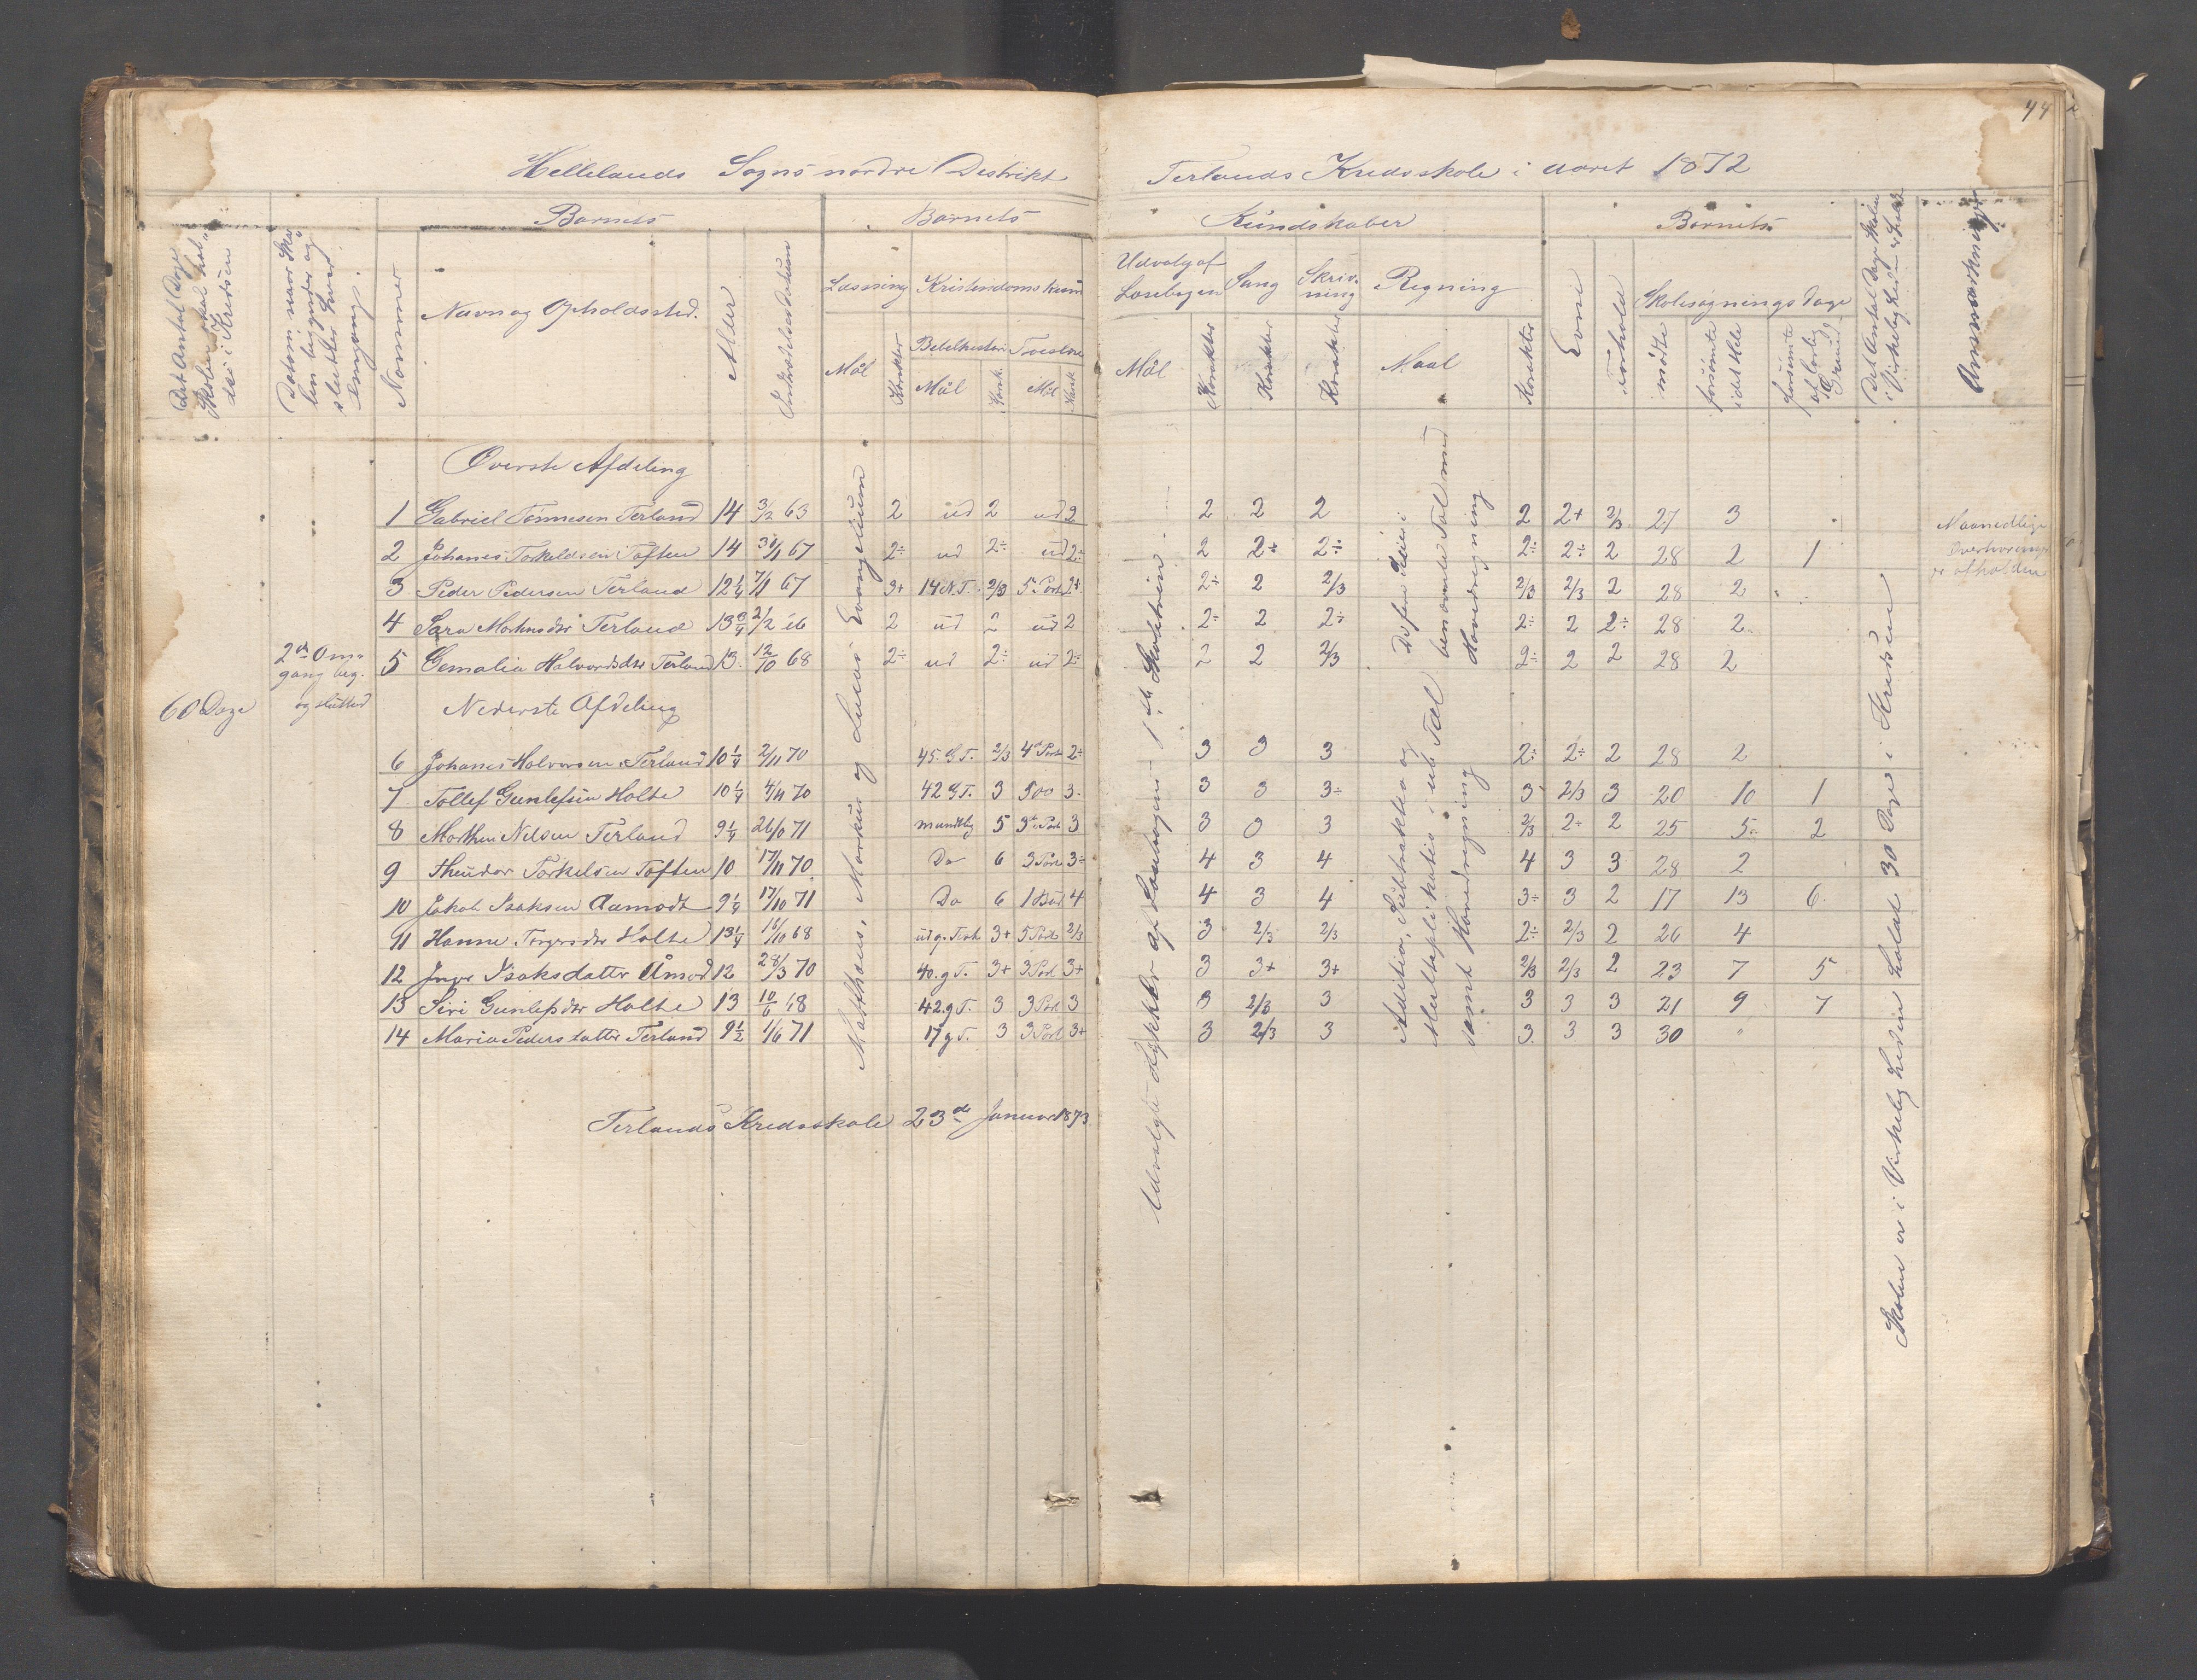 44
Hellelands Sogns nordre Destrikt Terlands Kredsskole i aaret 1872
Barnets Barnets Kundskaber Barnets
Det Antal Dage Skolen skal holdes i Kredsen
Nommer
Navn og Opholdssted.
Alder
Indtrædelsesdatum
Læsning Kristendomskund
Mål Karakter
Bibelhistori Troeslære
Mål Karak Mål Karak
Udvalg af Læsebogen Sang Skrivning Regning
Mål Karakter Karakter Karakter Maal Karakter
Evne
Forhold
Skolesøgningsdage
mødte forsømte i det Hele forsømte af lovlig Grund
Anmærkninger
Øverste Afdeling
1 Gabriel Tønnesen Terland 14 3/2 63 2 ud 2 ud 2 2 2 2 2 2+ 2/3 27 3
2 Johanes Torkeldsen Toften 14 31/1 67 2÷ ud 2÷ ud 2÷ 2 2÷ 2÷ 2÷ 2÷ 2 28 2 1
3 Peder Pedersen Terland 12 1/4 7/1 67 3+ 14 N.T. 2/3 5 Part 2+ 2÷ 2 2/3 2/3 2/3 2 28 2
4 Sara Mortensdtr Terland 13 3/4 2 ud 2 ud 2 2÷ 2 2÷ 2÷ 2 2÷ 28 2
5 Halvordsdtr Terland 13 12/10 68 2÷ ud 2÷ ud 2÷ 2 2 2/3 2÷ 2 2 28 2
60 Dage
2den Omgang beg. og slutted
Nederste Afdeling
6 Johanes Halvorsen Terland 10 1/4 2/11 70 45. G T. 2/3 4 Part 2÷ 3 3 3 2÷ 2÷ 2 28 2
7 Tollef Gunlefsen Holte 10 1/4 4/11 70 42 G T. 3 3 3 3÷ 3 2/3 3 20 10 1
8 Morthen Nelsen Terland 9 1/4 71 mundtlig 5 3 Part 3 3 0 3 2/3 2÷ 2 25 5 2
9 Torkelsen Toften 10 17/11 70 Do 6 3 Part 3÷ 4 3 4 4 3 3 28 2
10 Jakob Isaksen Aamodt 9 1/4 17/10 71 Do 6 1 Bud 4 4 3 4 3÷ 3 2 17 13 6
11 Hanne Torgersdtr Holte 13 1/4 16/10 68 3+ 5 Part 2/3 3 2/3 2/3 2÷ 2/3 2 26 4
12 Isaksdatter Åmod 12 28/3 70 40. g T. 3+ 3 Part 3+ 3 3+ 3+ 2/3 2/3 2 23 7 5
13 Siri Gunlefsdtr Holte 13 10/6 68 42. g T. 3 3 Part 3 3 2/3 3 3 3 3 21 9 7
14 Maria Pedersdatter Terland 9 1/2 1/6 71 17 g T. 3 3 Part 3+ 3 2/3 3 3 3 3 30 "
Matthæus, Markus og Lucas Evangelium
Udvalgte Stykker af Læsebogens 1ste Skoletrin
De fire Regningsarter i benævnte Tal med Hovedregning
Addition, Subtraktion og Multiplikation i ub. Tal samt Hovedregning
Skolen er i Virkelighedem holdt 30 Dage i Kredsen
Maanedlige Overhøringer er afholden
Terlands Kredsskole 23de Januar 1873.